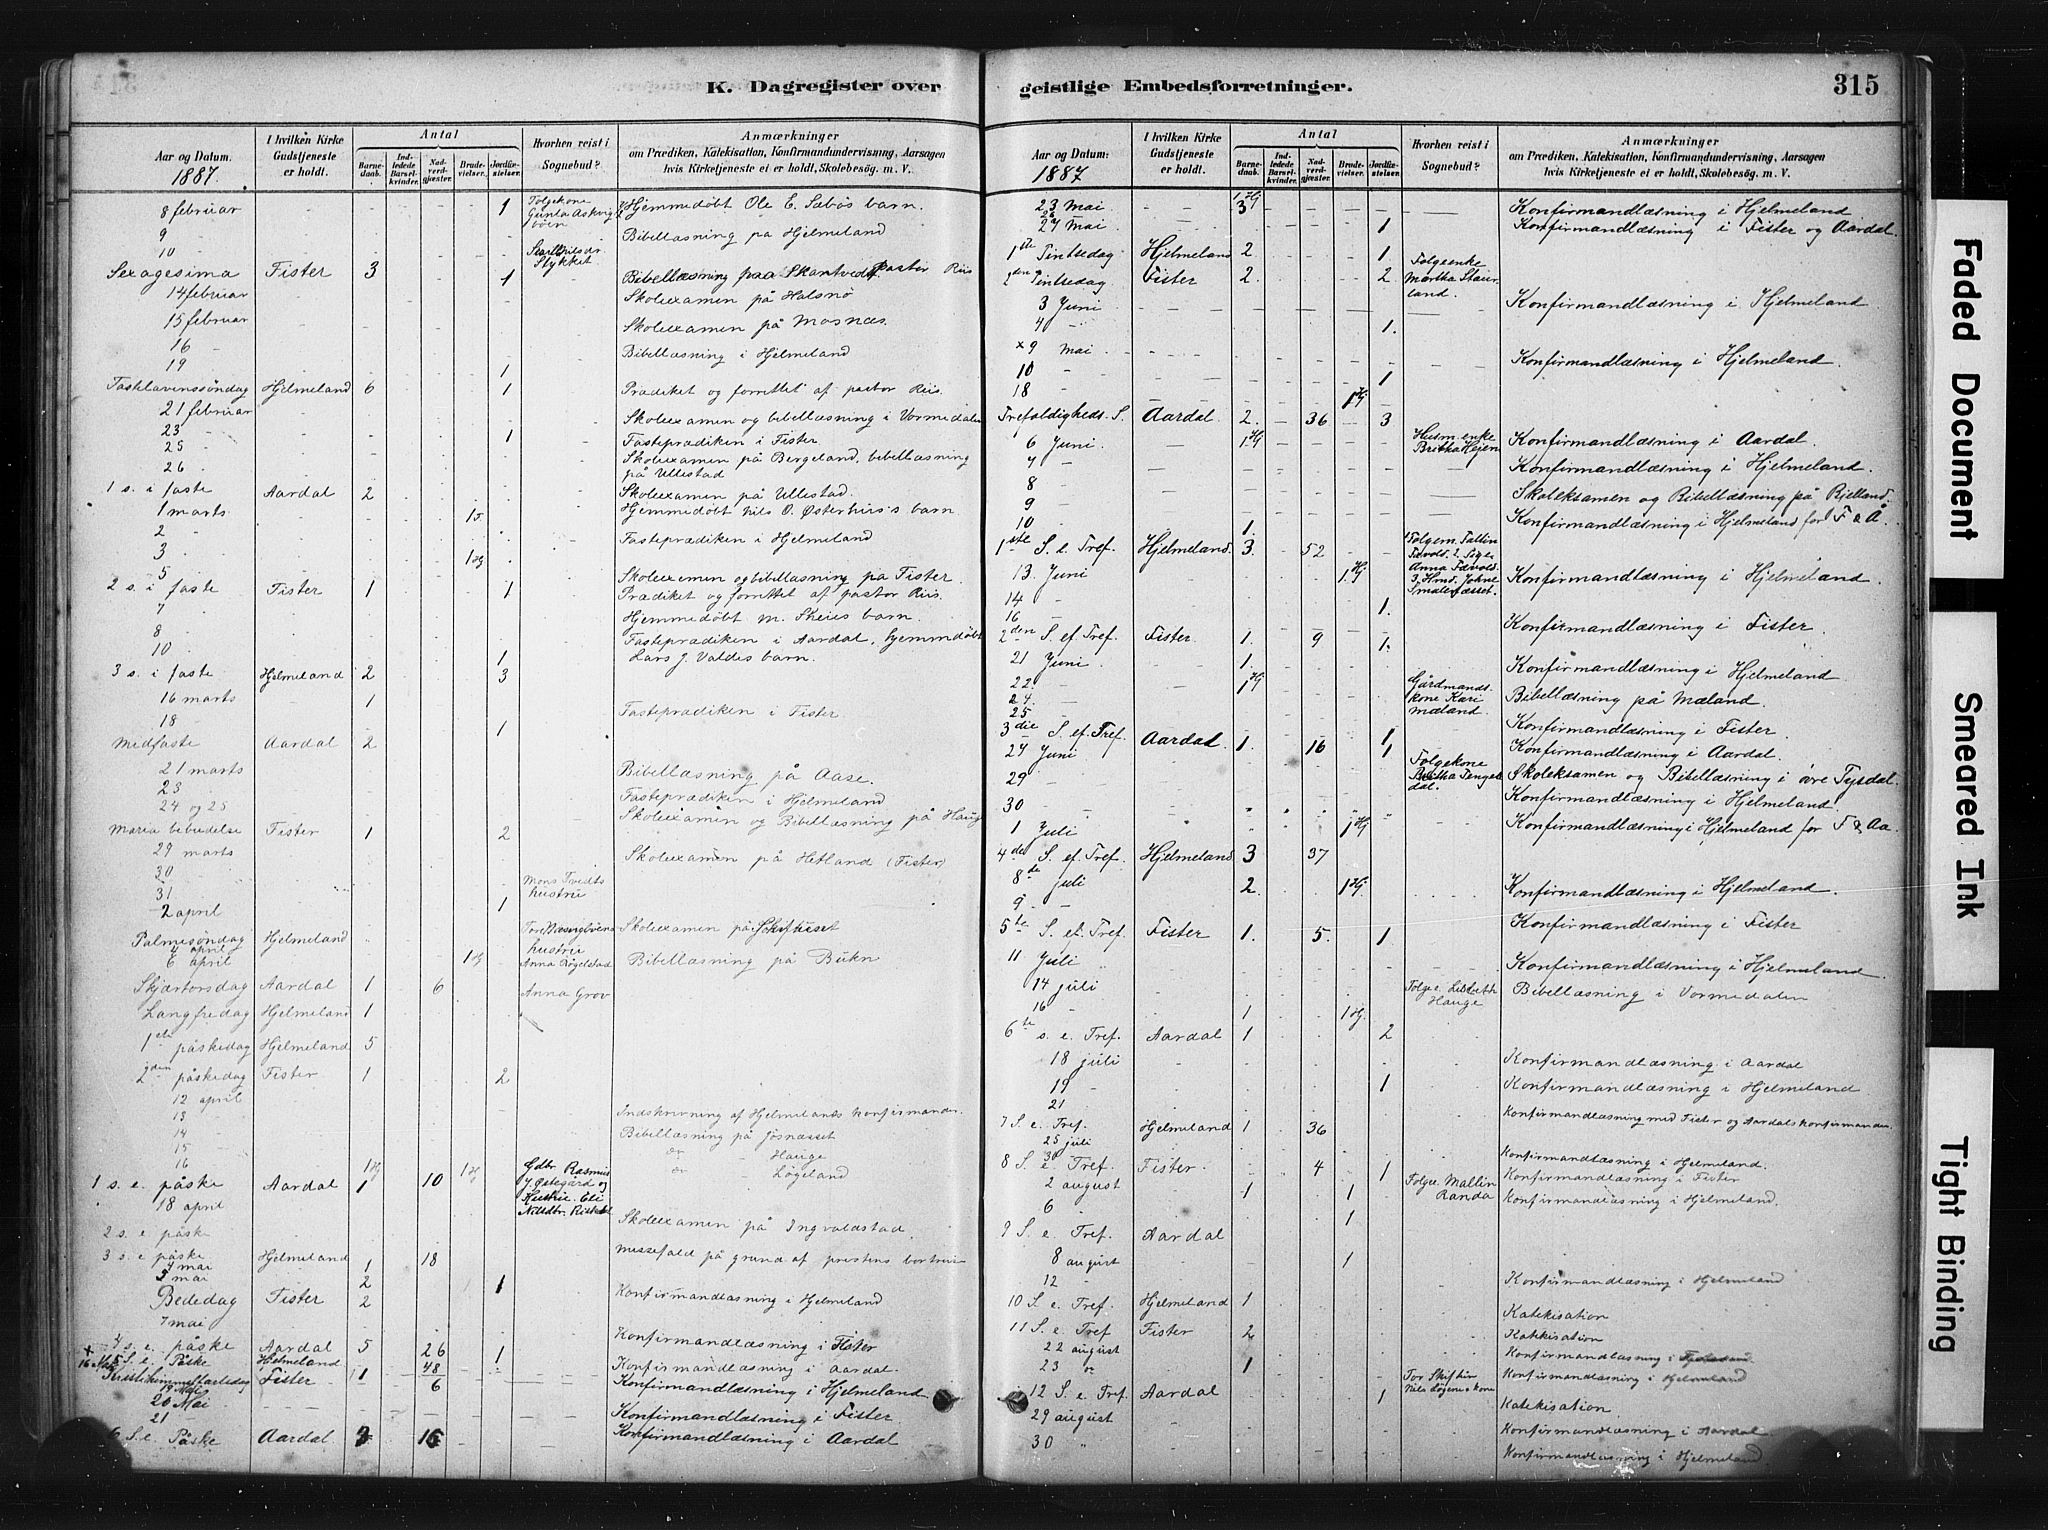 K. Dagregister over
Aar og Datum.
1887.
I hvilken Kirke Gudstjeneste er holdt.
Antal
Barnedaab.
Indledede Barselkvinder.
Nadverdgjæster.
Brudevielser.
Jordfæstelser.
Hvorhen reist i Sognebud?
Anmærkninger
om Prædiken, Katekisation, Konfirmandundervisning, Aarsagen
hvis Kirketjeneste ei er holdt, Skolebesøg. m. V.
8 februar 1 Hjemmedøbt Ole E. Sæbøs barn.
9 Bibellæsning på Hjelmeland
10
Sexagesima Fister 3 1 Bibellæsning paa Pastor Riis
14 februar Skoleexamen på Halsnø
15 februar Skoleexamen på Mosnæs.
16 Bibellæsning i Hjelmeland
19 1
Fastelavenssøndag Hjelmeland 6 1 Prædiket og forrettet af pastor Riis.
21 februar Skoleexamen og bibellæsning i Vormedalen
23 1 Fasteprædiken i Fister
25 Skoleexamen på Bergeland, bibellæsning
26 på Ullestad
1 s. i faste Aardal 2 Skoleexamen på Ullestad.
1 marts Hjemmedøbt Nils O. Østerhus's barn.
2 Fasteprædiken i Hjelmeland
3
5 Skoleexamen og bibellæsning på Fister.
2 s. i faste Fister 1 1 Prædiket og forrettet af pastor Riis.
7 Hjemmedøbt M. Skeies barn.
8 Fasteprædiken i Aardal, hjemmedøbt
10 1 Lars J. Valdes barn.
3 s. i faste Hjelmeland 2 3
16 marts 1 Fasteprædiken i Fister.
18 1
Midfaste Aardal 2
21 marts Bibellæsning på Aase.
23 Fasteprædiken i Hjelmeland
24 og 25 Skoleexamen og Bibellæsning på Hauge
Maria bebudelse Fister 1 2
29 marts Skoleexamen på Hetland (Fister)
30
31 Mons Tvedts hustrue
2 april 1
Palmesøndag Hjelmeland hustrue Skoleexamen på
4 april
6 april 1 Hj Bibellæsning på Bukn
Skjærtorsdag Aardal 1 6 Anna Grov
Langfredag Hjelmeland 1
1ste påskedag Hjelmeland 5
2den påskedag Fister 1 2
12 april
13 Indskrivning af Hjelmelands konfirmander.
14 Bibellæsning på Jøsnæsset
15 do - Hauge
16 1 Hj 1 Hj do - Løgeland
1 s. e. påske Aardal 1 10 Gdbr. Rasmus J. Østegård og Hustrue Eli
18 april Skoleexamen på Ingvaldstad.
2 s. e. påske Messefald på grund af prestens bortreise
3 s. e. påske Hjelmeland 1 18
4 mai
5 mai 2 1
Bededag Fister 2 Konfirmandlæsning i Hjelmeland
7 mai
4 s. e. påske Aardal 5 26 Konfirmandlæsning i Fister
16 Mai 5 S. e. Påske Hjelmeland 48 1 Konfirmandlæsning i Aardal.
Kristi himmelfartsdag Fister 1 6 Konfirmandlæsning i Hjelmeland
19 Mai
20 Mai
21 Konfirmandlæsning i Fister
6 S. e. Påske Aardal 3 15 Konfirmandlæsning i Aardal
geistlige Embedsforretninger.
315
Aar og Datum:
1887
I hvilken Kirke Gudstjeneste er holdt.
Antal
Barnedaab.
Indledede Barselkvinder.
Nadverdgjæster.
Brudevielser.
Jordfæstelser.
Hvorhen reist i Sognebud?
Anmærkninger
om Prædiken, Katekisation, Konfirmandundervisning, Aarsagen
hvis Kirketjeneste ei er holdt, Skolebesøg, m. V.
23 Mai 3 Konfirmandlæsning i Hjelmeland
27 Mai 1 Konfirmandlæsning i Fister og Aardal.
1ste Pintsedag Hjelmeland 2 1
2den Pintsedag Fister 2. 2 Folgeenke Martha
3 Juni Konfirmandlæsning i Hjelmeland
4 1.
x 9 Mai Konfirmandlæsning i Hjelmeland.
10 1
18 1 Hj
Trefoldigheds. S. Aardal 2. 36 3
6 Juni 1 Hj Husm. enke Britha Konfirmandlæsning i Aardal.
7 Konfirmandlæsning i Hjelmeland.
8 Skoleksamen og Bibellæsning på
9 Konfirmandlæsning i Hjelmeland for F & Å.
10 1.
1ste S. e. Tref. Hjelmeland. 3. 52
13. Juni 1 Hj Konfirmandlæsning i Hjelmeland
14
16 1. Konfirmandlæsning i Fister
2den S. ef. Tref. Fister. 1. 9 1.
21 Juni 1. Konfirmandlæsning i Hjelmeland
22. 1 Hj Gårdmandskone Kari Mæland. Bibellæsning på Mæland.
24.
25 Konfirmandlæsning i Fister.
3die S. ef. Tref. Aardal. 1. 16 1
27 Juni 1 Folgekone Britha Konfirmandlæsning i Aardal.
29 Skoleksamen og Bibellæsning i øvre Tysdal.
30 Konfirmandlæsning i Hjelmeland.
1 Juli 1 Hj Konfirmandlæsning i Hjelmeland for F & Aa.
4de S. ef. Tref. Hjelmeland 3 37
8de juli 2. 1 Hj. Konfirmandlæsning i Hjelmeland.
9
5te S. ef. Tref. Fister 1. 5. 1 Konfirmandlæsning i Fister
11 Juli Konfirmandlæsning i Hjelmeland.
14 juli Hauge Bibellæsning i Vormedalen
16 1 1 Hj.
6te s. e. Tref. Aardal 1 2
18 juli Konfirmandlæsning i Aardal
19 1 Konfirmandlæsning i Hjelmeland
21 Konfirmandlæsning med Fister og Aardals konfirmander.
7 S. e. Tref. Hjelmeland 1 36
25 juli Konfirmandlæsning i Hjelmeland.
30
8 S. e. Tref. Fister. 4 1 Konfirmandlæsning i Fister
2 august 1 1 Folgee. Mallin Randa Konfirmandlæsning i Hjelmeland.
6 1
9 S. e. Tref. Aardal
8 august 1
12 Konfirmandlæsning i Hjelmeland
10 S. e. Tref. Hjelmeland 1 Katekisation
11 S. e. Tref Fister 2 Katekisation
22 august Konfirmandlæsning i
23 do 1 Konfirmandlæsning i Hjelmeland
12 S. e. Tref Aardal 1 Katekisation.
29 august Konfirmandlæsning i Aardal
30 Konfirmandlæsning i Hjelmeland.
Faded Document
Smeared Ink
Tight Binding